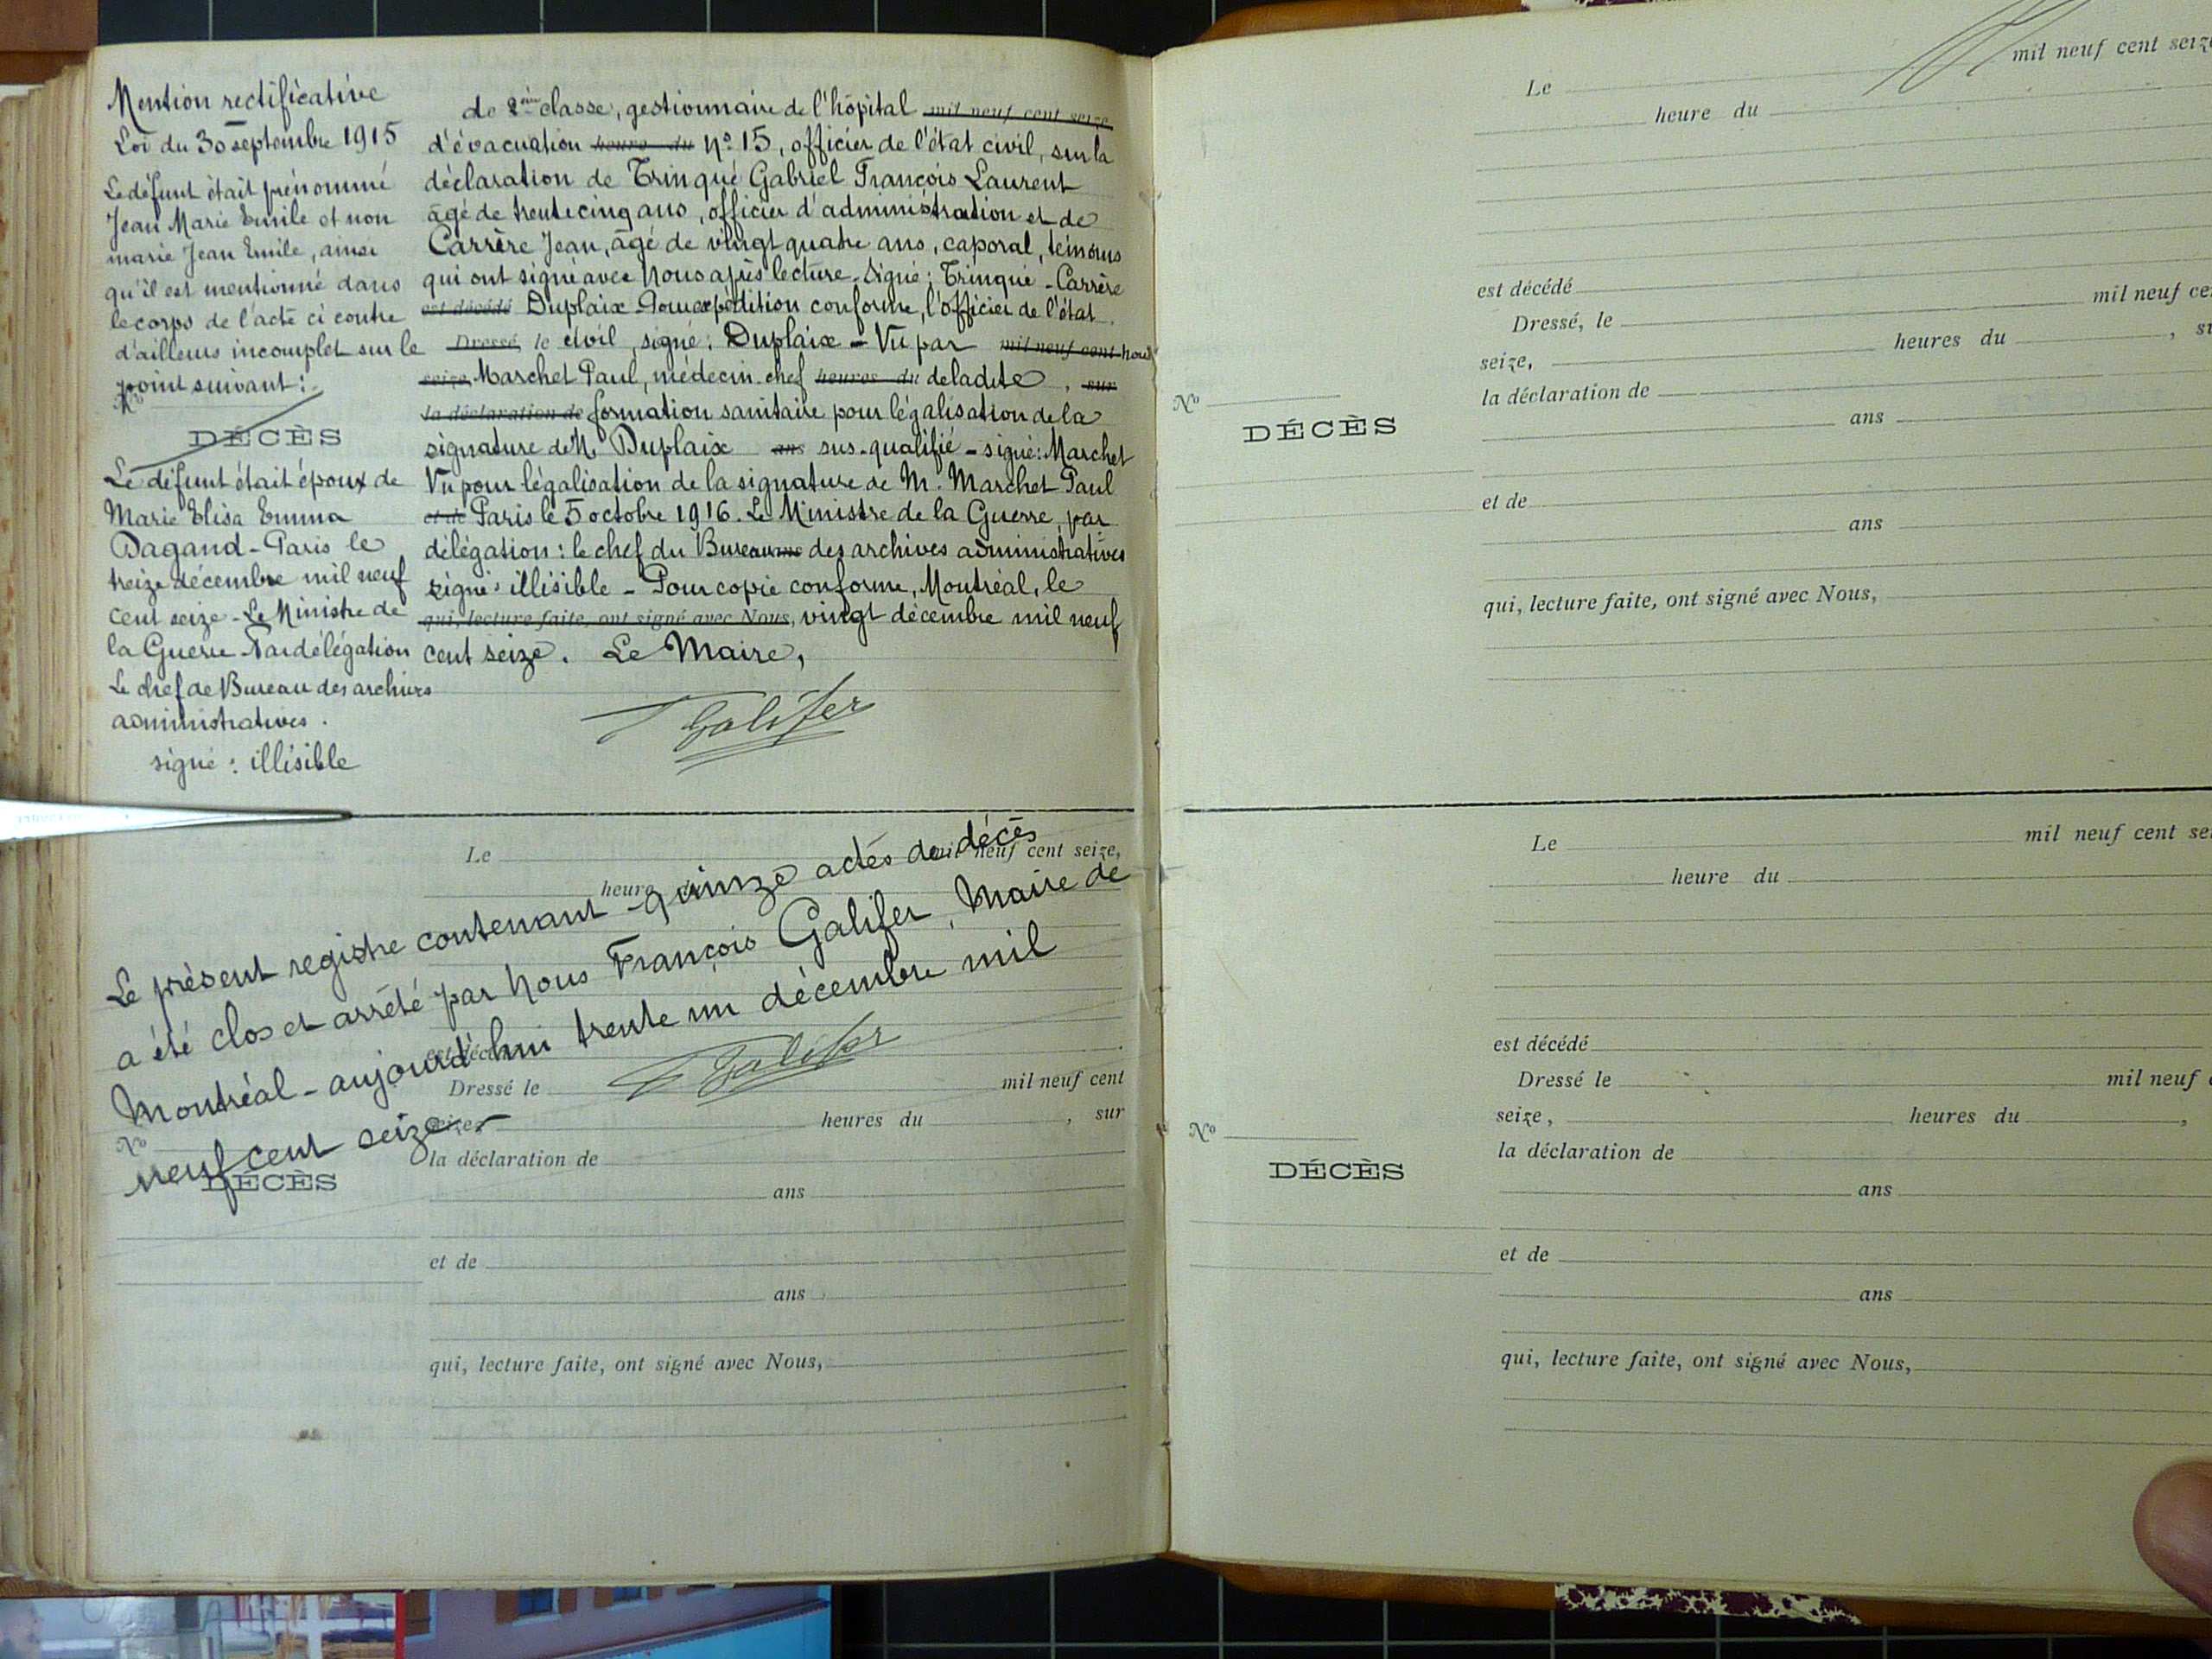 Mention rectificative
Loi du 30 septembre 1915
Le défunt était prénommé
Jean Marie Emile et non
marie Jean Emile, ainsi
qu'il est mentionné dans
le corps de l'acte ci contre
d'ailleurs incomplet sur le
point suivant :
N°
DÉCÈS
Le défunt était époux de
Marie Elisa Emma
Dagand - Paris le
treize décembre mil neuf
cent seize - Le Ministre de
la Guerre Par délégation
Le chef de Bureau des archives
administratives .
signé : illisible
de 2ème classe, gestionnaire de l'hôpital mil neuf cent seize
d'évacuation heure du N° 15, officier de l'état civil, sur la
déclaration de Trinqué Gabriel François Laurent
âgé de trente cinq ans, officier d'administration et de
Carrère Jean, âgé de vingt quatre ans, caporal, témoins
qui ont signé avec Nous après lecture. Signé : Trinqué - Carrère
est décédé Duplaix - Pour expédition conforme, l'officier de l'état
Dressé, le civil, signé : Duplaix - Vu par mil neuf cent nous
seize, Marchet Paul, médecin chef heures du de ladite , sur
la déclaration de formation sanitaire pour légalisation de la
signature de M. Duplaix ans sus-qualifié - signé : Marchet
Vu pour légalisation de la signature de M. Marchet Paul
et de Paris le 5 octobre 1916. Le Ministre de la Guerre, par
délégation : le chef du Bureau des archives administratives
signé : illisible - Pour copie conforme, Montréal, le
qui, lecture faite, ont signé avec Nous, vingt décembre mil neuf
cent seize. Le Maire,
Galifer
Le mil neuf cent seize,
heure
Le présent registre contenant quinze actes de décès
a été clos et arrêté par Nous François Galifer, Maire de
Montréal - aujourd'hui trente un décembre mil
neuf cent seize -
Galifer
est décédé
Dressé le mil neuf cent
seize, heures du , sur
N°
DÉCÈS
la déclaration de
ans
et de
ans
qui, lecture faite, ont signé avec Nous,
Le mil neuf cent seize
heure du
est décédé
Dressé, le mil neuf ce
seize, heures du , su
N°
DÉCÈS
la déclaration de
ans
et de
ans
qui, lecture faite, ont signé avec Nous,
Le mil neuf cent se
heure du
est décédé
Dressé le mil neuf c
seize, heures du ,
N°
DÉCÈS
la déclaration de
ans
et de
ans
qui, lecture faite, ont signé avec Nous,